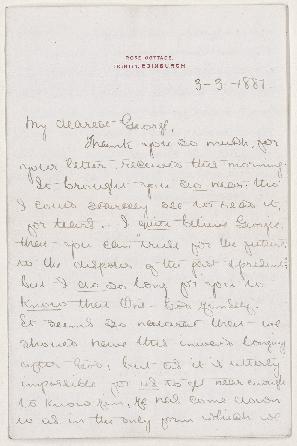 ROSE COTTAGE,
TRINITY, EDINBURGH
3-3-1887.
My dearest George,
Thank you so much, for
your letter - received this morning.
It brought you so near, tho'
I could scarcely see to read it,
for tears. I quite believe George,
that you can trust for the future,
to the disposer of the past & present;
but I do so long for you to
know that One - God Himself.
It seems so natural that we
should have this inward longing
after God, but as it is utterly
impossible for us to get near enough
to know Him, He has come down
to us in the only form which we